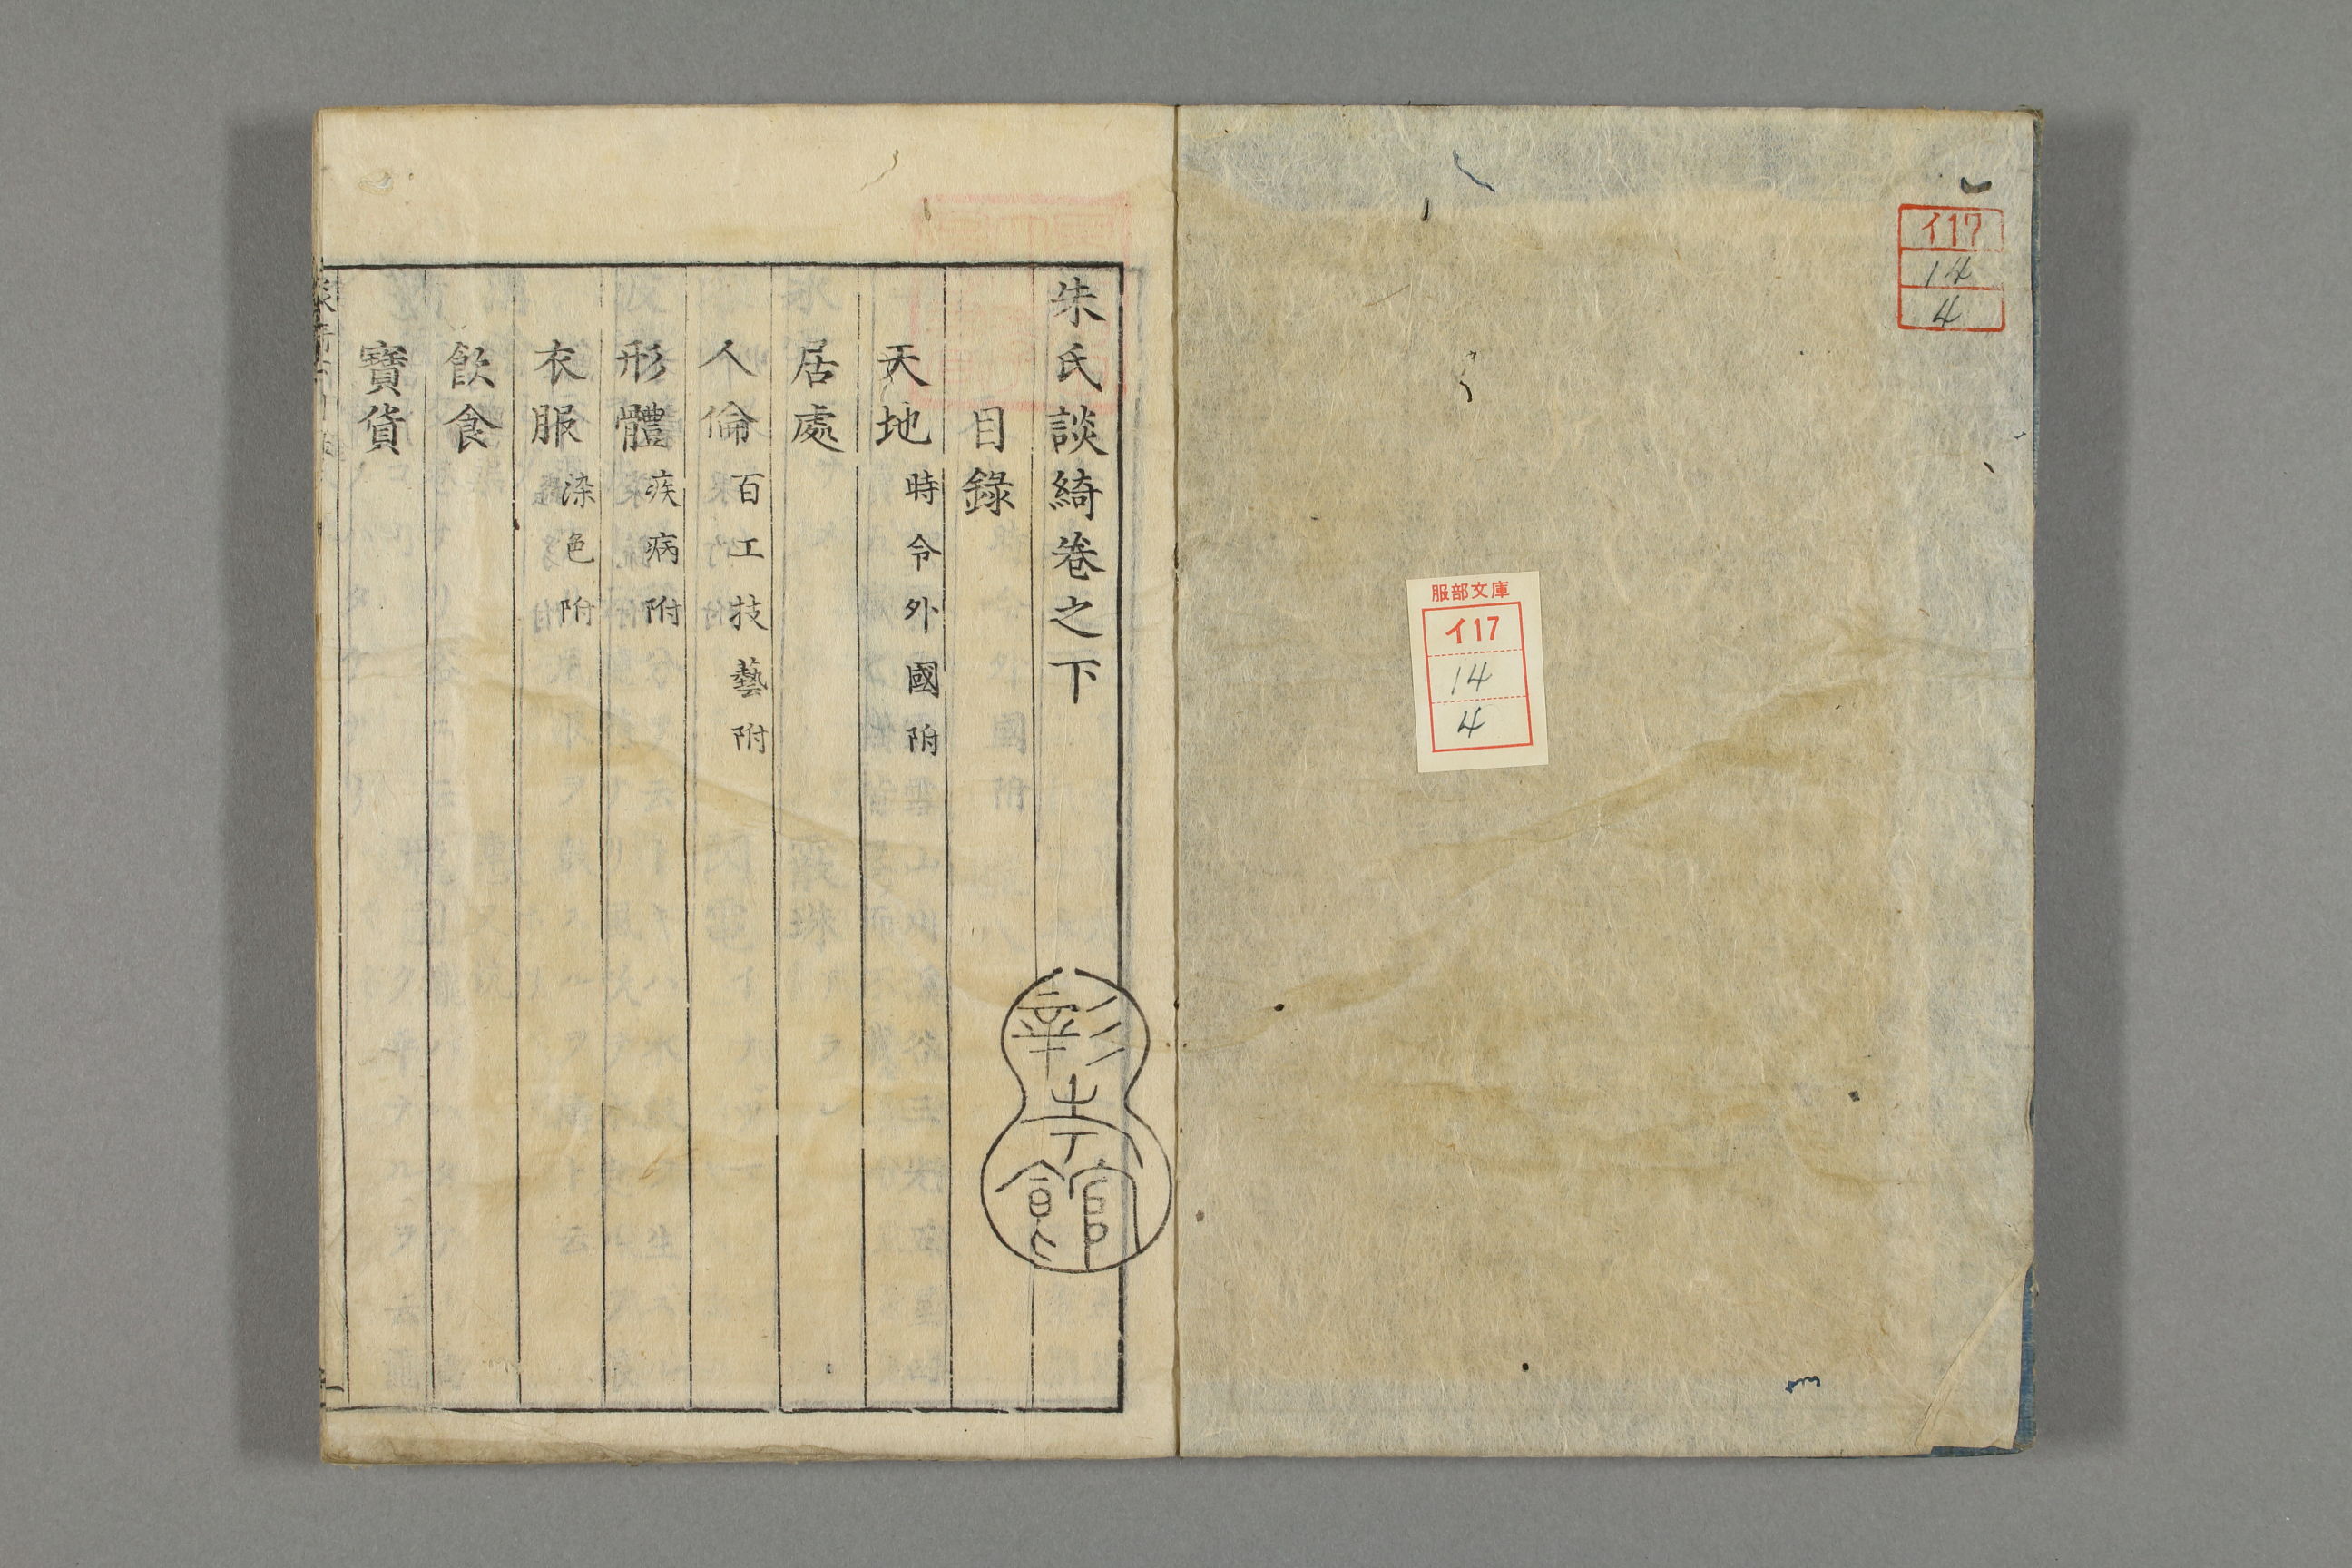 イ17
14
4
服部文庫
イ17
14
4
朱氏談綺卷之下
目錄
天地 時令外國附
居處
人倫 百工技藝附
形體 疾病附
衣服 染色附
飲食
寶貨
彰考館